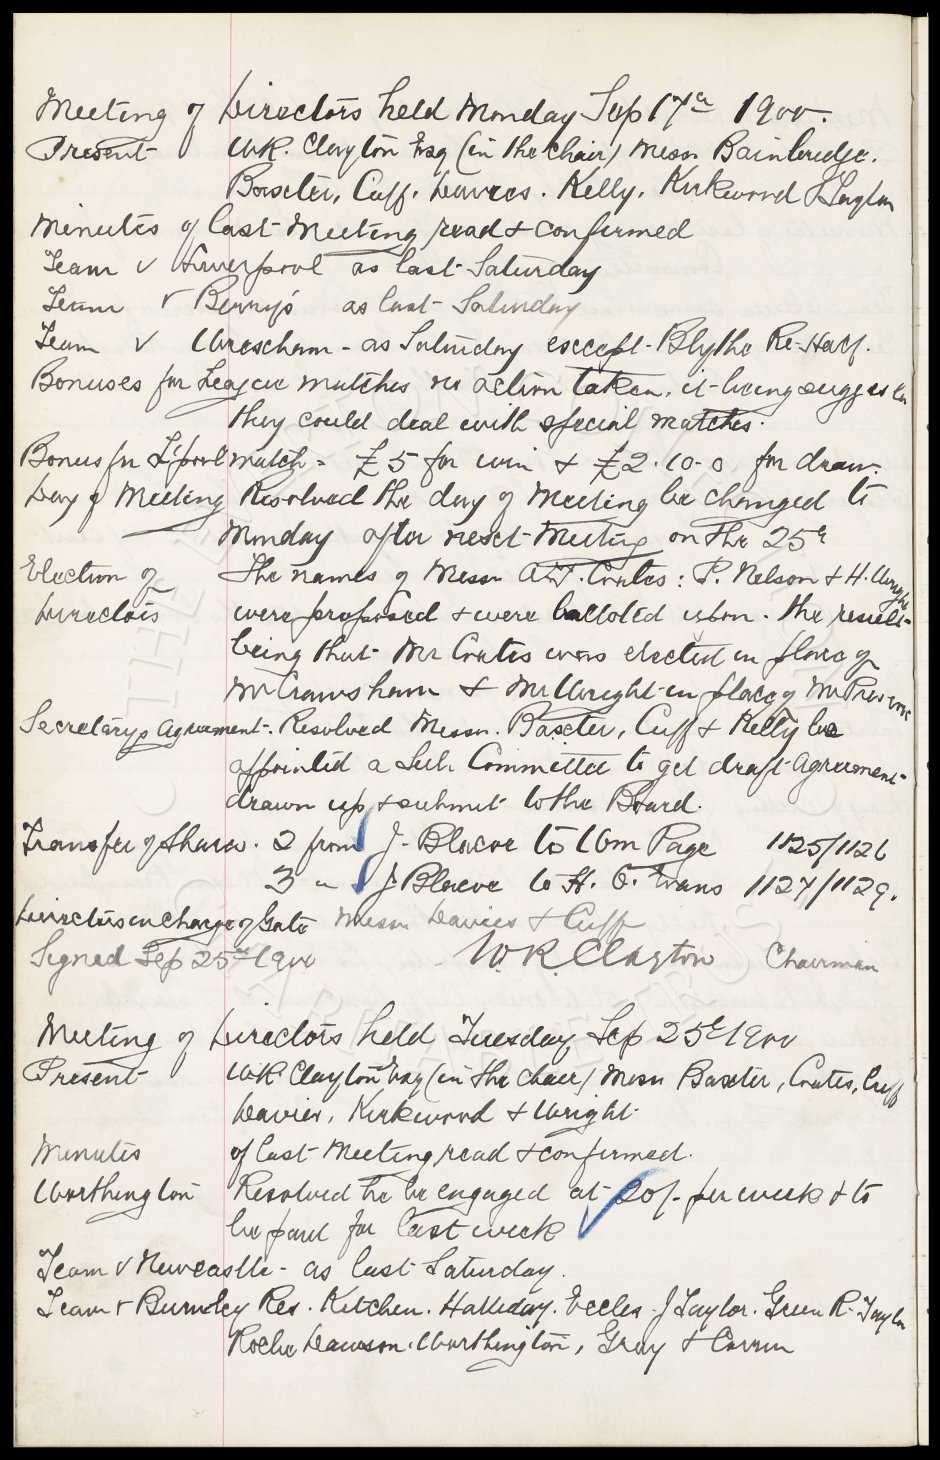 Meeting of Directors held Monday Sep 17th 1900.
Present W.R. Clayton Esq (in the chair) Messrs Bainbridge.
Baxter, Cuff, Davies. Kelly, Kirkwood &
Minutes of last Meeting read & confirmed
Team v Liverpool as last Saturday
Team v Bury's as last Saturday
Team v Wrexham - as Saturday except Blythe Re-Half.
Bonuses for League matches no action taken, it being
they could deal with special matches.
Bonus for L'pool match - £5 for win & £2.10.0 for draw.
Day of Meeting Resolved the day of Meeting be changed to
Monday after next Meeting on the 25th
Election of The names of Messrs Coates: P. Nelson & H. Wright
Directors were proposed & were balloted upon. the result
being that Mr Coates was elected in place of
Mr Crawshaw & Mr Wright in place of Mr
Secretarys Agreement. Resolved Messrs. Baxter, Cuff & Kelly be
appointed a Sub Committee to get draft Agreement
drawn up & submit to the Board.
Transfer of Shares. 2 from J. Blacoe to Wm Page 1125/1126
3 " J Blacoe to H. O. Evans 1127/1129.
Directors in charge of Gate Messrs Davies & Cuff
Signed Sep 25th 1900 W.R. Clayton Chairman
Meeting of Directors held Tuesday, Sep 25th 1900
Present WR Clayton Esq (in the chair) Messrs Baxter, Coates, Cuff
Davies, Kirkwood & Wright.
Minutes of last Meeting read & confirmed.
Worthington Resolved he be engaged at 20/- per week & to
be paid for last week
Team v Newcastle - as last Saturday.
Team v Burnley Res. Kitchen. Halliday. Eccles. J Taylor. Green R. Taylor
Roche Dawson. Worthington, Gray &